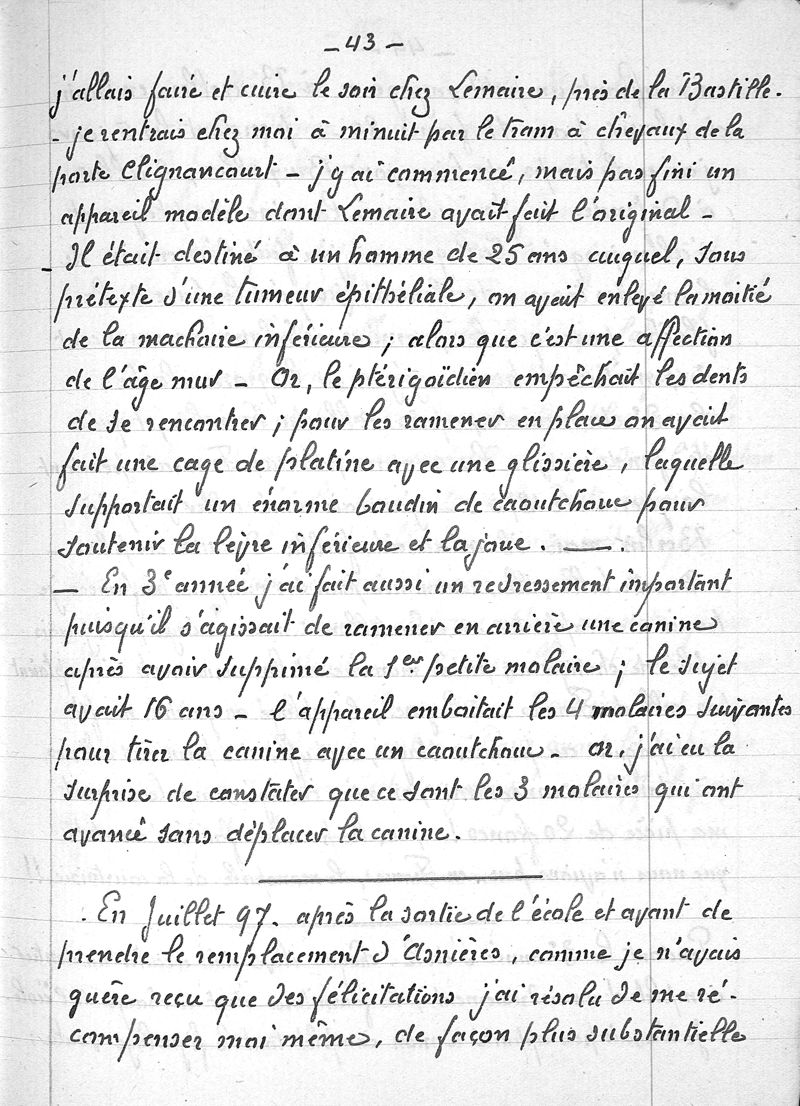 - 43 -
j'allais faire et cuire le soir chez Lemaire, près de la Bastille.
- je rentrais chez moi à minuit par le tram à chevaux de la
porte Clignancourt - j'y ai commencé, mais pas fini un
appareil modèle dont Lemaire avait fait l'original -
- Il était destiné à un homme de 25 ans auquel, sous
prétexte d'une tumeur épithéliale, on avait enlevé la moitié
de la machoire inférieure ; alors que c'est une affection
de l'âge mur - Or, le ptérigoïdien empêchait les dents
de se rencontrer ; pour les ramener en place on avait
fait une cage de platine avec une glissière, laquelle
supportait un énorme boudin de caoutchouc pour
soutenir la lèvre inférieure et la joue. —.
- En 3e année j'ai fait aussi un redressement important
puisqu'il s'agissait de ramener en arrière une canine
après avoir supprimé la 1er petite molaire ; le sujet
avait 16 ans - l'appareil emboitait les 4 molaires suivantes
pour tirer la canine avec un caoutchouc - or, j'ai eu la
surprise de constater que ce sont les 3 molaires qui ont
avancé sans déplacer la canine.
. En Juillet 97. après la sortie de l'école et avant de
prendre le remplacement d'Asnières, comme je n'avais
guère reçu que des félicitations j'ai résolu de me ré-
compenser moi même, de façon plus substantielle